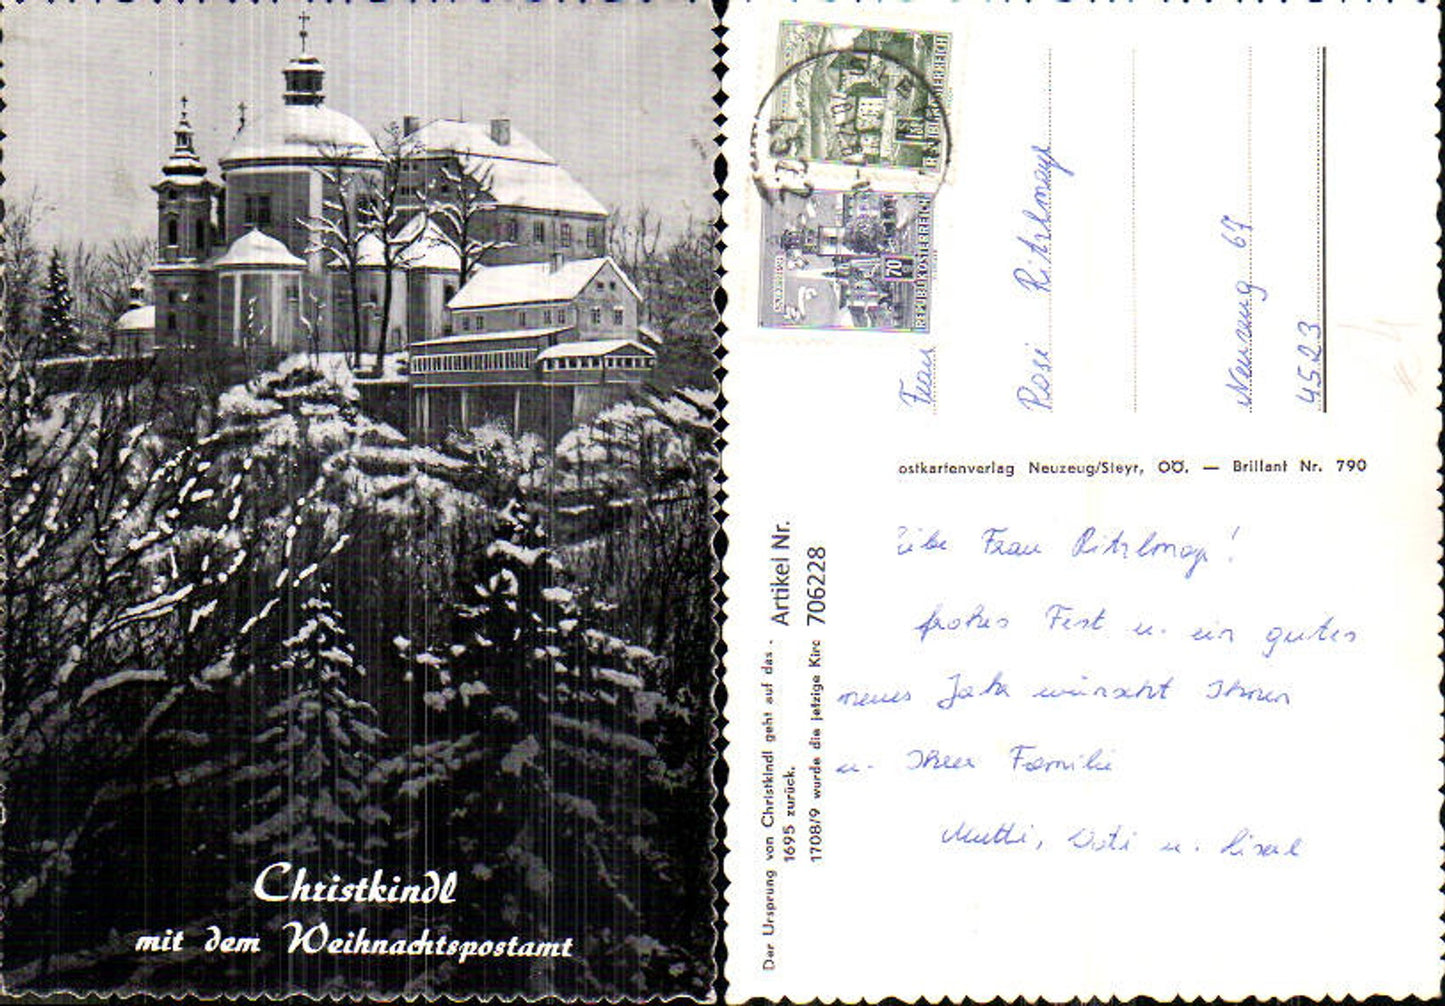 Christkindl
mit dem Weihnachtspostamt
REPUBLIK ÖSTERREICH
70
REPUBLIK ÖSTERREICH
Frau
Rosi Ritzlmayr
Neuzeug 67
4523
ostkartenverlag Neuzeug/Steyr, OÖ. — Brillant Nr. 790
Der Ursprung von Christkindl geht auf das
1695 zurück.
1708/9 wurde die jetzige Kirc
Artikel Nr.
706228
Liebe Frau Ritzlmayr!
frohes Fest u. ein gutes
neues Jahr wünscht Ihnen
u. Ihrer Familie
Mutti, Vati u. Lisal